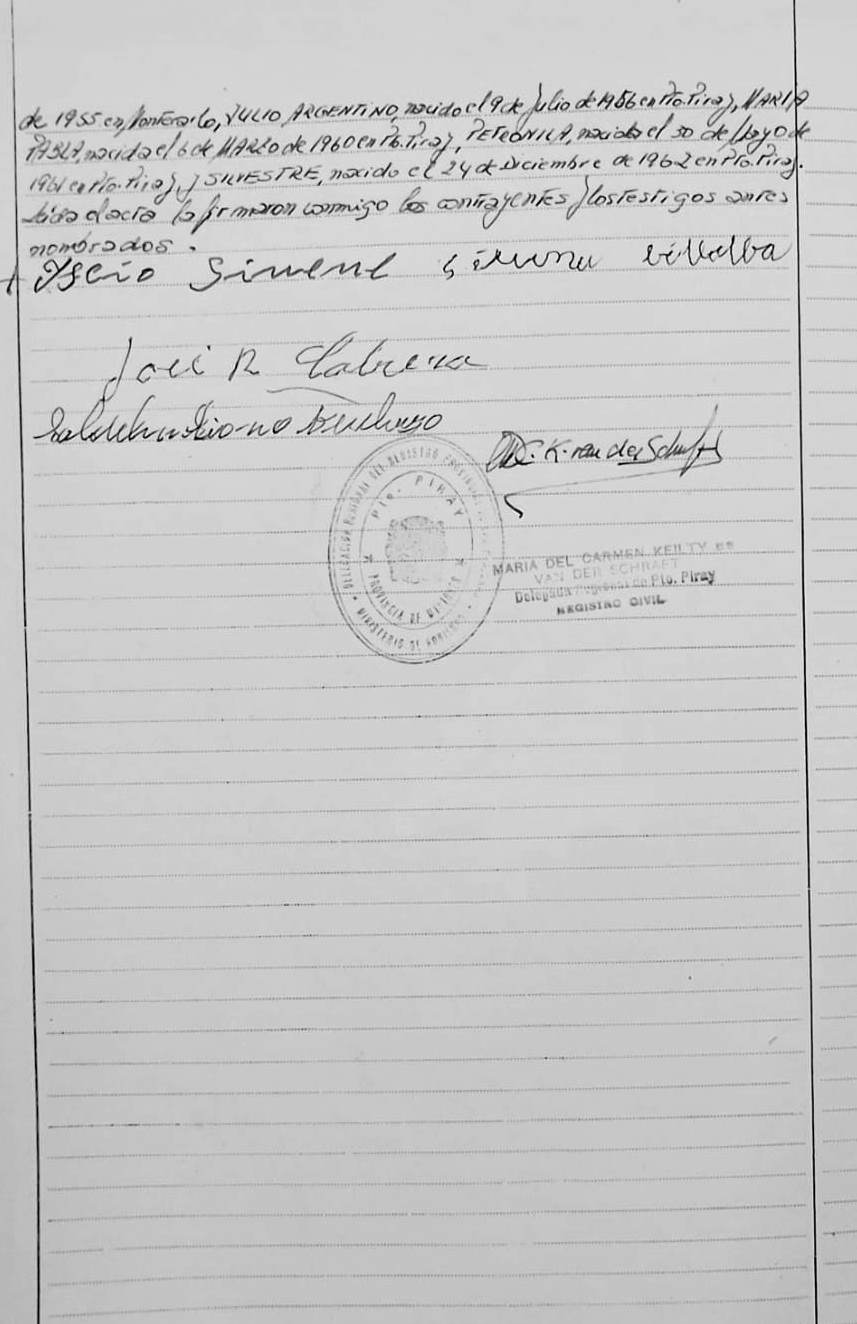 de 1955 en Montecarlo, JULIO ARGENTINO, nacido el 9 de Julio de 1956 en Pto. Piray, MARIA
PABLA, nacida el 6 de MARZO de 1960 en Pto. Piray, PETRONILA, nacida el 30 de Mayo de
1961 en Pto. Piray, y SILVESTRE, nacido el 24 de Diciembre de 1962 en Pto. Piray.
Leída el acta la firmaron conmigo los contrayentes y los testigos antes
nombrados.
villalba
José R Cabrera
C. K. van der Schraft
DELEGACION DEL REGISTRO PROVINCIAL
Pto. PIRAY
PROVINCIA DE MISIONES
MINISTERIO DE GOBIERNO
MARIA DEL CARMEN KEILTY DE
VAN DER SCHRAFT
Delegada Regional de Pto. Piray
REGISTRO CIVIL